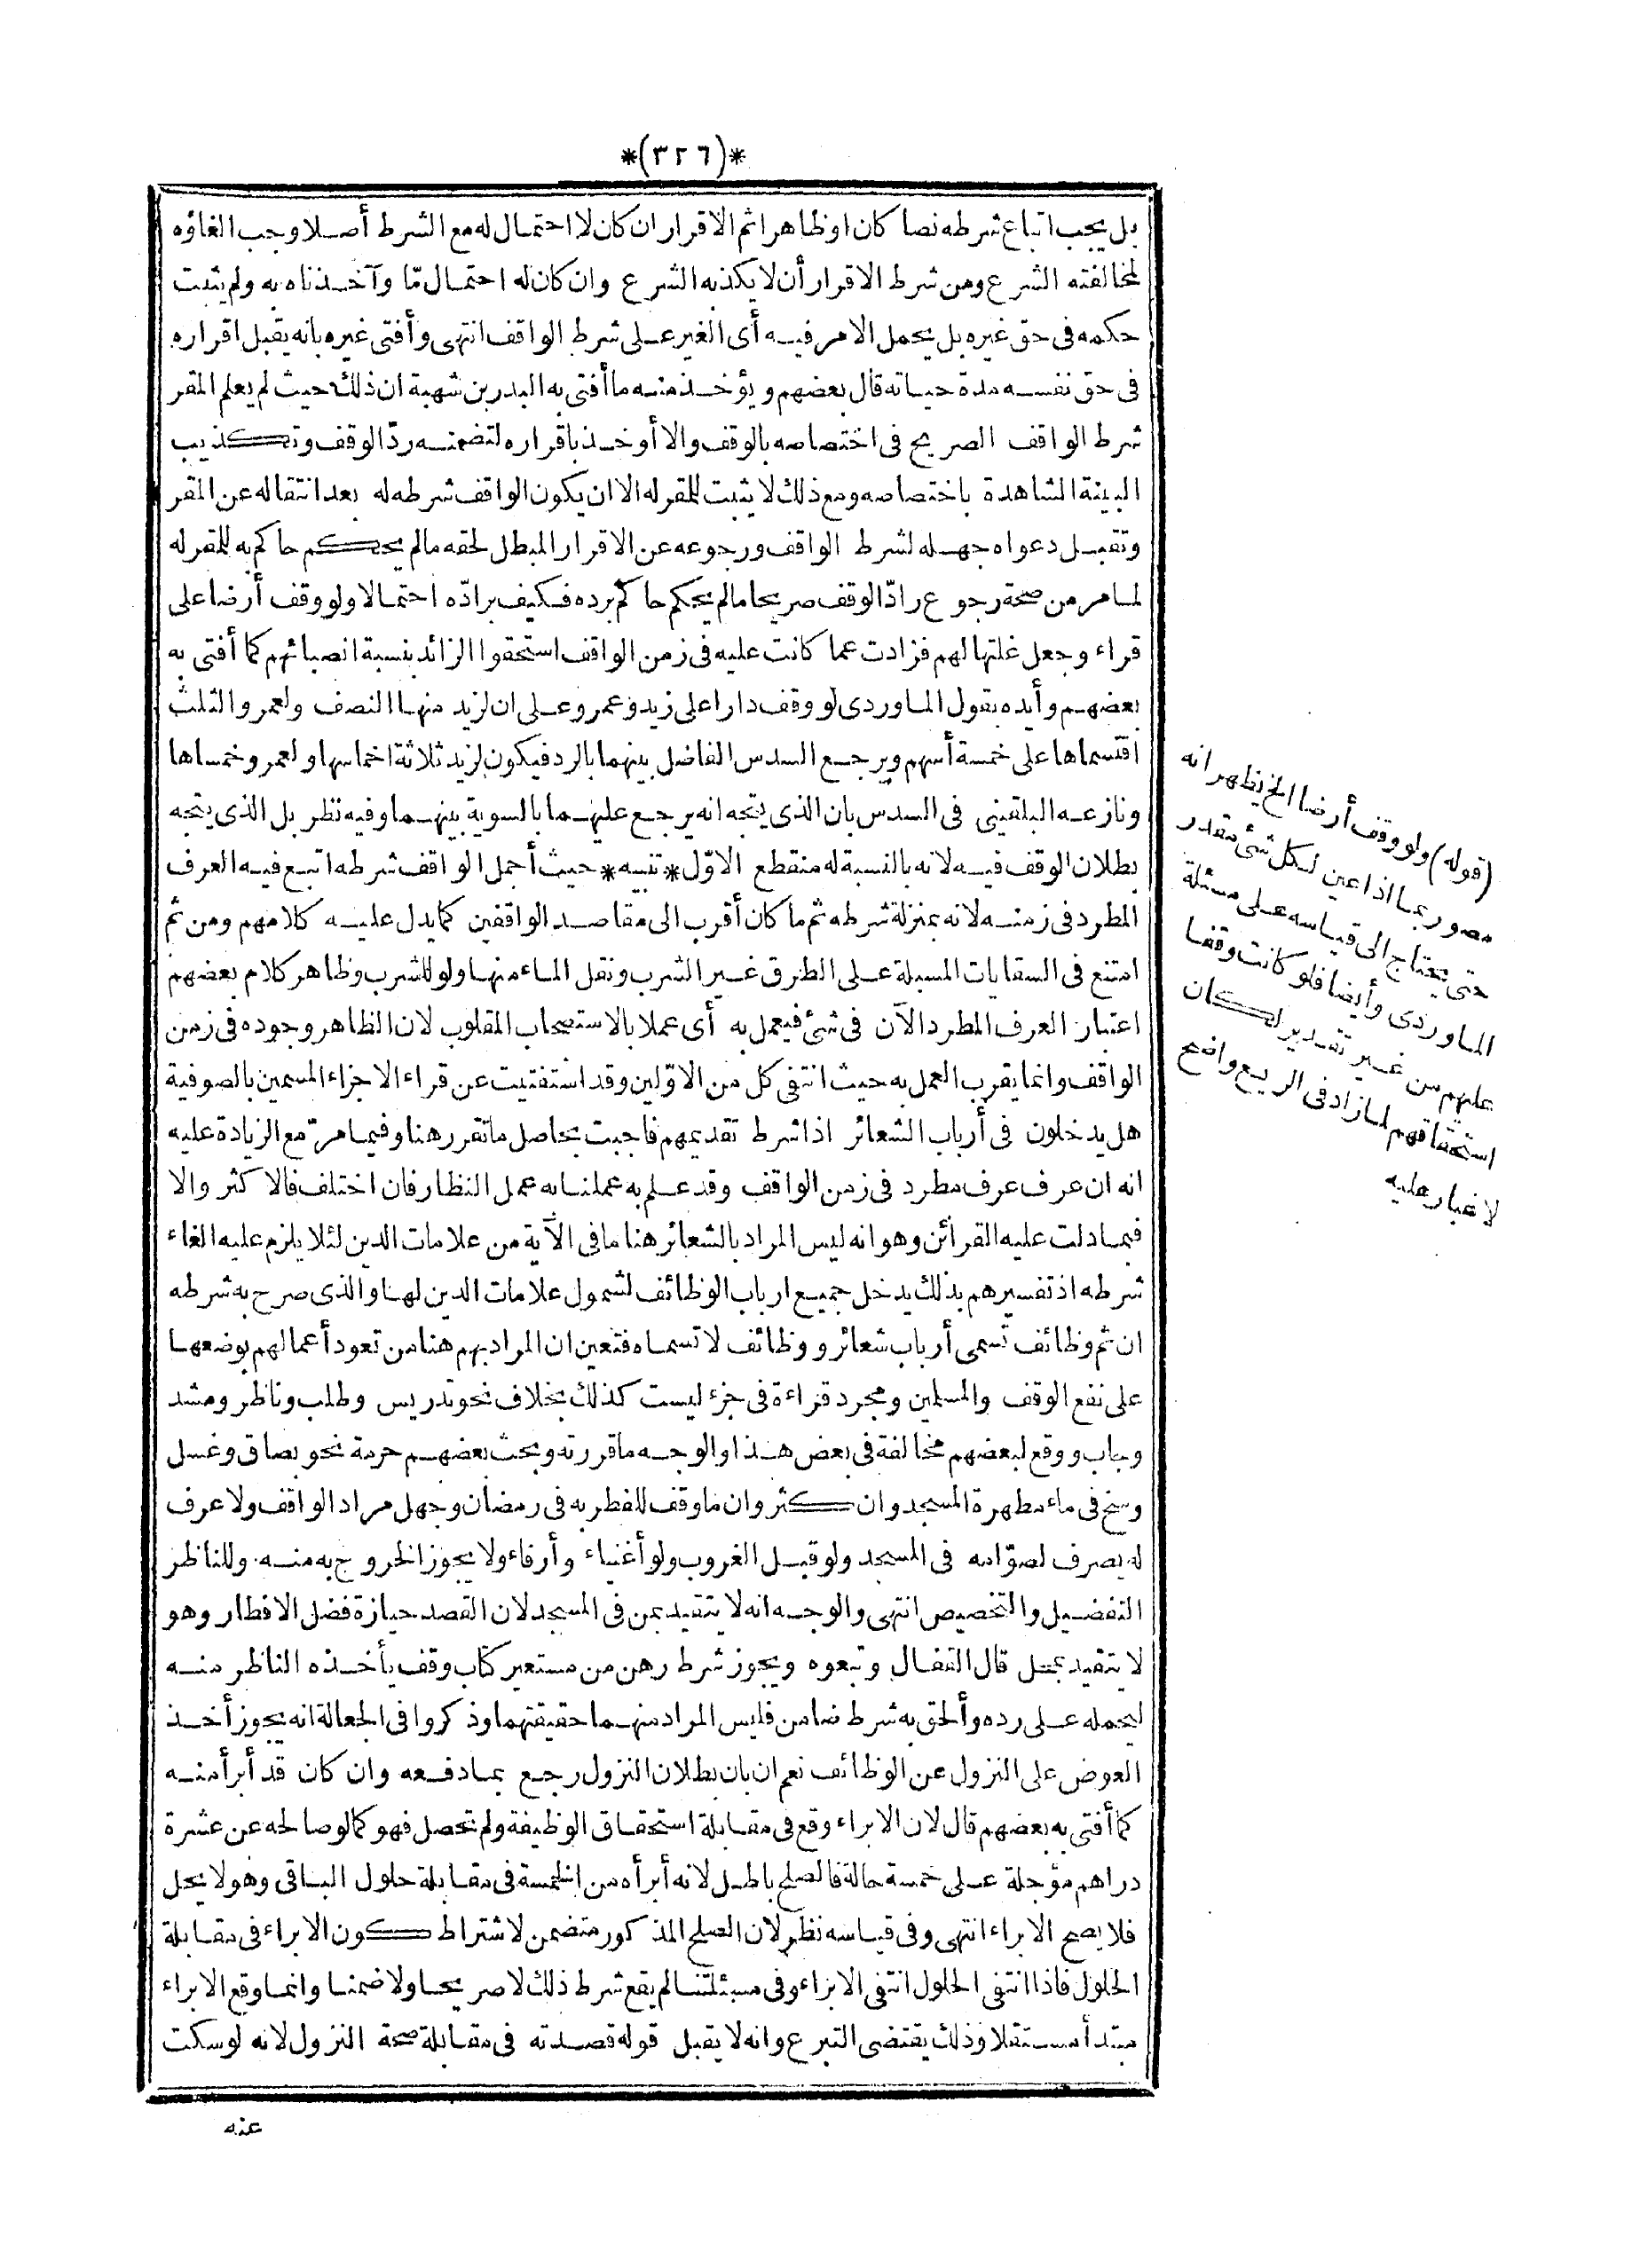 *(٣٢٦)*
بل يجب اتباع شرطه نصا كان او ظاهرا ثم الاقرار ان كان لا احتمال له مع الشرط أصلا وجب الغاؤه
لمخالفته الشرع ومن شرط الاقرار أن لا يكذبه الشرع وان كان له احتمال مّا وآخذناه به ولم يثبت
حكمه فى حق غيره بل يحمل الامر فيه أى الغير على شرط الواقف انتهى وأفتى غيره بانه يقبل اقراره
فى حق نفسه مدة حياته قال بعضهم ويؤخذ منه ما أفتى به البدر بن شهبة ان ذلك حيث لم يعلم المقر
شرط الواقف الصريح فى اختصاصه بالوقف والا أوخذ باقراره لتضمنه ردّ الوقف وتكذيب
البينة الشاهدة باختصاصه ومع ذلك لا يثبت للمقر له الا ان يكون الواقف شرطه له بعد انتقاله عن المقر
وتقبل دعواه جهله لشرط الواقف ورجوعه عن الاقرار المبطل لحقه مالم يحكم حاكم به للمقر له
لما مر من صحة رجوع رادّ الوقف صريحا مالم يحكم حاكم برده فكيف برادّه احتمالا ولو وقف أرضا على
قراء وجعل غلتها لهم فزادت عما كانت عليه فى زمن الواقف استحقوا الزائد بنسبة انصبائهم كما أفتى به
بعضهم وأيده بقول الماوردى لو وقف دارا على زيد وعمرو وعلى ان لزيد منها النصف ولعمرو الثلث
اقتسماها على خمسة أسهم ويرجع السدس الفاضل بينهما بالرد فيكون لزيد ثلاثة اخماسها ولعمرو خمساها
ونازعه البلقينى فى السدس بان الذى يتجه انه يرجع عليهما بالسوية بينهما وفيه نظر بل الذى يتجه
بطلان الوقف فيه لانه بالنسبة له منقطع الاوّل *تنبيه* حيث أجمل الواقف شرطه اتبع فيه العرف
المطرد فى زمنه لانه بمنزلة شرطه ثم ما كان أقرب الى مقاصد الواقفين كما يدل عليه كلامهم ومن ثم
امتنع فى السقايات المسبلة على الطرق غير الشرب ونقل الماء منها ولو للشرب وظاهر كلام بعضهم
اعتبار العرف المطرد الآن فى شئ فيعمل به أى عملا بالاستصحاب المقلوب لان الظاهر وجوده فى زمن
الواقف وانما يقرب العمل به حيث انتفى كل من الاوّلين وقد استفتيت عن قراء الاجزاء المسمين بالصوفية
هل يدخلون فى أرباب الشعائر اذا شرط تقديمهم فاجبت بحاصل ما تقرر هنا وفيما مرّ مع الزيادة عليه
انه ان عرف عرف مطرد فى زمن الواقف وقد علم به عملنا به عمل النظار فان اختلف فالاكثر والا
فبما دلت عليه القرائن وهو انه ليس المراد بالشعائر هنا ما فى الآية من علامات الدين لئلا يلزم عليه الغاء
شرطه اذ تفسيرهم بذلك يدخل جميع ارباب الوظائف لشمول علامات الدين لها والذى صرح به شرطه
ان ثم وظائف تسمى أرباب شعائر ووظائف لا تسماه فتعين ان المراد بهم هنا من تعود أعمالهم بوضعها
على نفع الوقف والمسلمين ومجرد قراءة فى جزء ليست كذلك بخلاف نحو تدريس وطلب وناظر ومشد
وجاب ووقع لبعضهم مخالفة فى بعض هذا والوجه ما قررته وبحث بعضهم حرمة نحو بصاق وغسل
وسخ فى ماء مطهرة المسجد وان كثر وان ما وقف للفطر به فى رمضان وجهل مراد الواقف ولا عرف
له يصرف لصوّامه فى المسجد ولو قبل الغروب ولو أغنياء وأرقاء ولا يجوز الخروج به منه وللناظر
التفضيل والتخصيص انتهى والوجه انه لا يتقيد بمن فى المسجد لان القصد حيازة فضل الافطار وهو
لا يتقيد بمحل قال القفال وتبعوه ويجوز شرط رهن من مستعير كتاب وقف يأخذه الناظر منه
ليحمله على رده وألحق به شرط ضامن فليس المراد منهما حقيقتهما وذكروا فى الجعالة انه يجوز أخذ
العوض على النزول عن الوظائف نعم ان بان بطلان النزول رجع بما دفعه وان كان قد أبرأ منه
كما أفتى به بعضهم قال لان الابراء وقع فى مقابلة استحقاق الوظيفة ولم تحصل فهو كما لو صالحه عن عشرة
دراهم مؤجلة على خمسة حالة فالصلح باطل لانه أبرأه من الخمسة فى مقابلة حلول الباقى وهو لا يحل
فلا يصح الابراء انتهى وفى قياسه نظر لان الصلح المذكور متضمن لاشتراط كون الابراء فى مقابلة
الحلول فاذا انتفى الحلول انتفى الابراء وفى مسئلتنا لم يقع شرط ذلك لا صريحا ولا ضمنا وانما وقع الابراء
مبتدأ مستقلا وذلك يقتضى التبرع وانه لا يقبل قوله قصدته فى مقابلة صحة النزول لانه لو سكت
عنه
(قوله) ولو وقف أرضا الخ يظهر انه
مصور بما اذا عين لكل شئ مقدر
حتى يحتاج الى قياسه على مسئلة
الماوردى وأيضا فلو كانت وقفا
عليهم من غير تقدير لكان
استحقاقهم لما زاد فى الريع واضح
لا غبار عليه